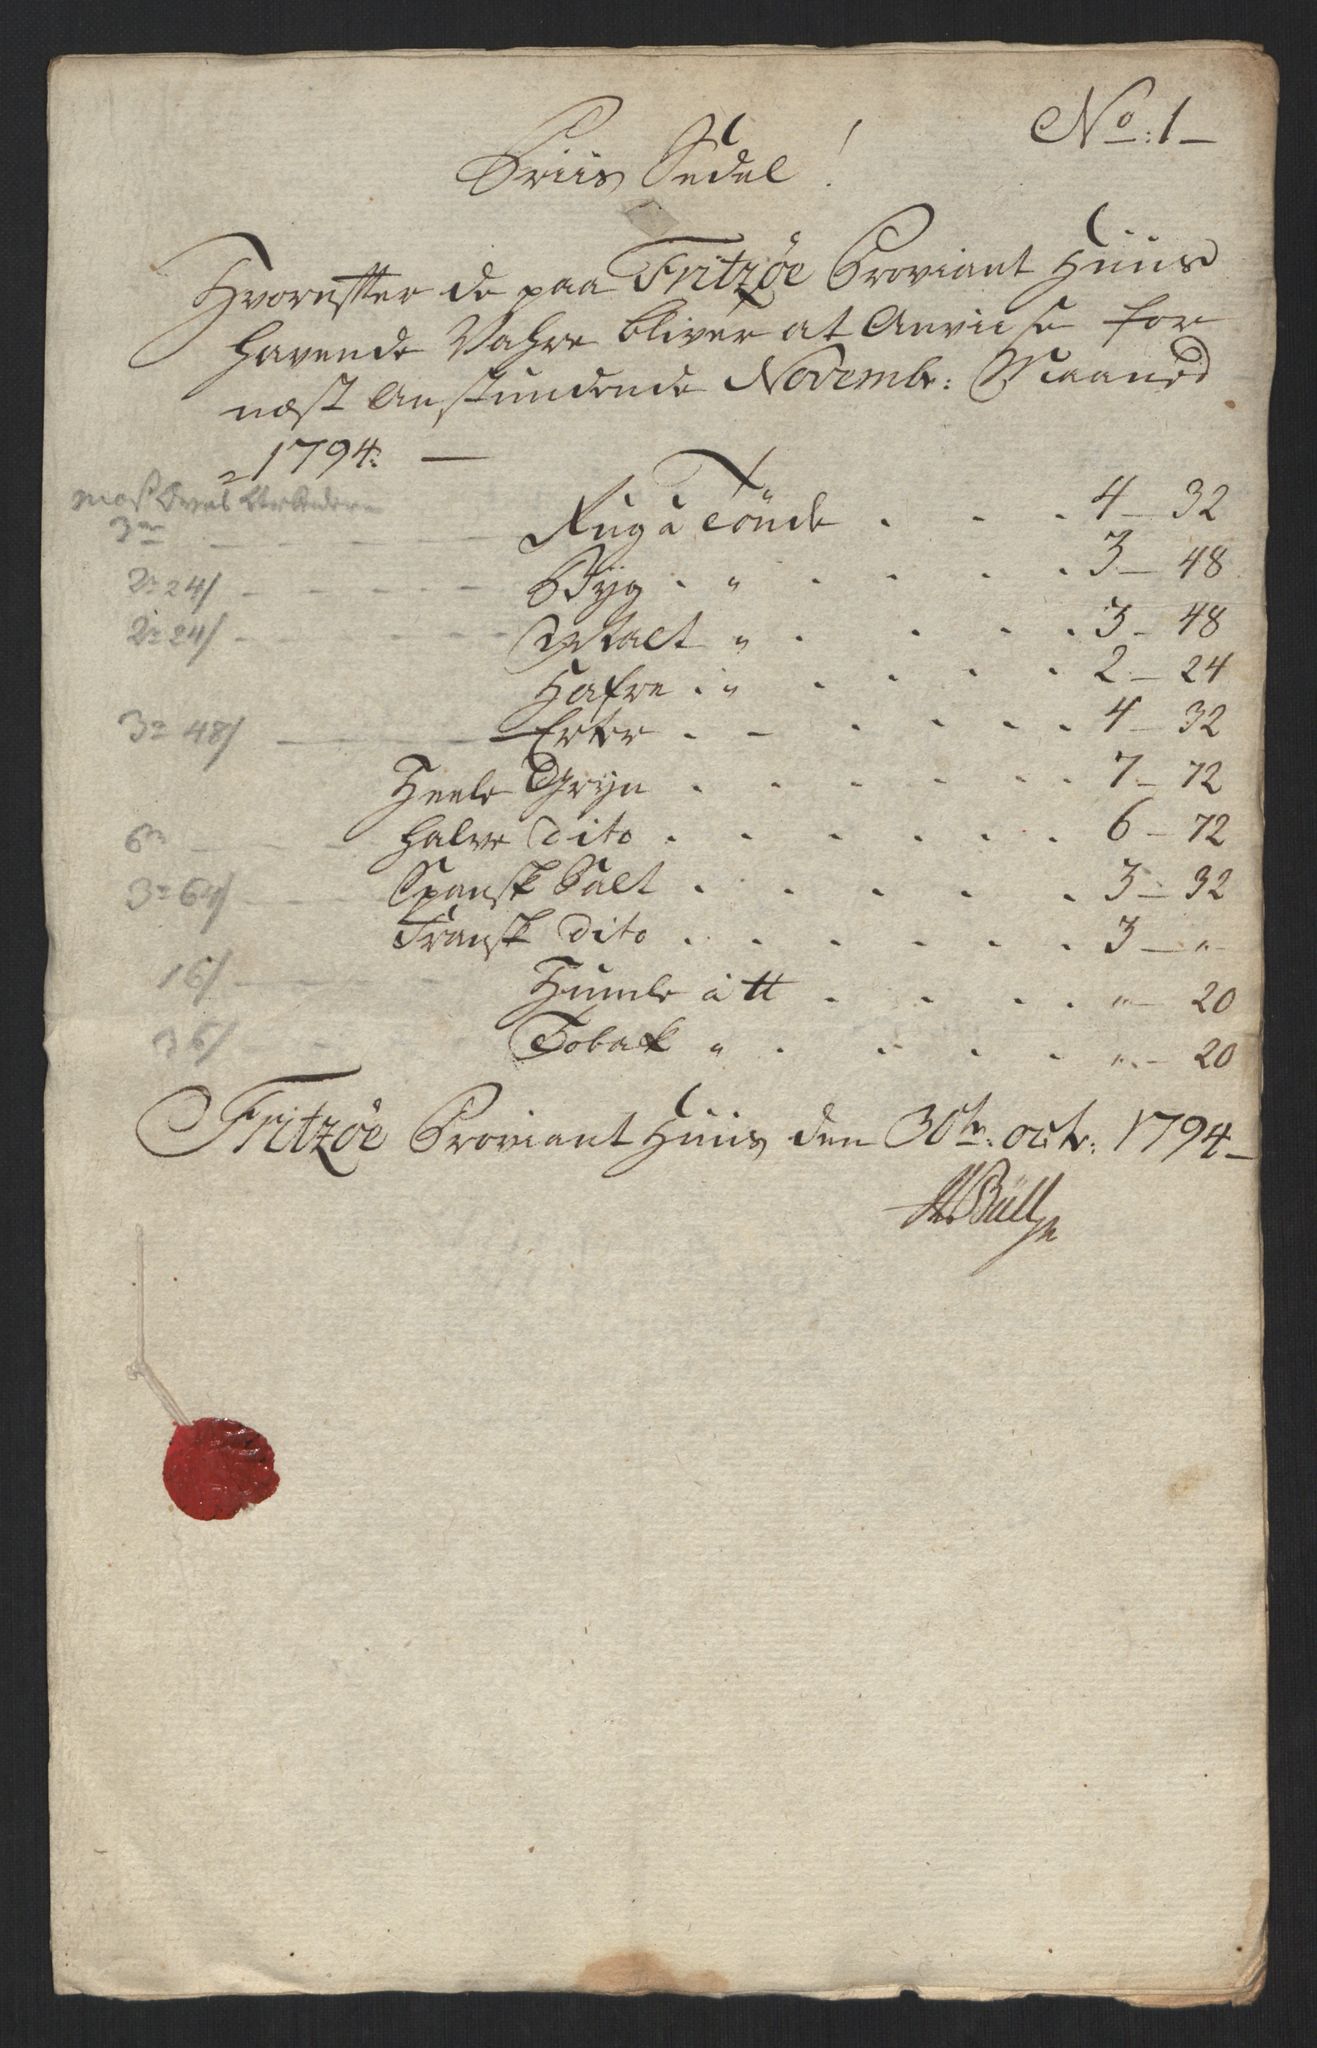 No: 1
Priis Sedel!
Hvorefter de paa Fritzøe Proviant Huus
havende Vahre bliver at Anviise for
næst Anstundende Novembr: Maaned
1794. —
Rug a Tønde . . . 4 — 32
3
Byg . " . . . . 3 — 48
2 24/
Malt " . . . . 3 — 48
2 24/
Hafre . " . . . . 2 — 24
Erter . . . . . . 4 — 32
3 48/
Heele Gryn . . . . . . 7 — 72
halve Dito . . . . . . 6 — 72
6
Spansk Salt . . . . . 3 — 32
3 64/
Fransk Dito . . . . . . 3 — "
Humle a ℔ . . . . " — 20
16/
Tobak " . . . . " — 20
36/
Fritzøe Proviant Huus den 30te octr: 1794